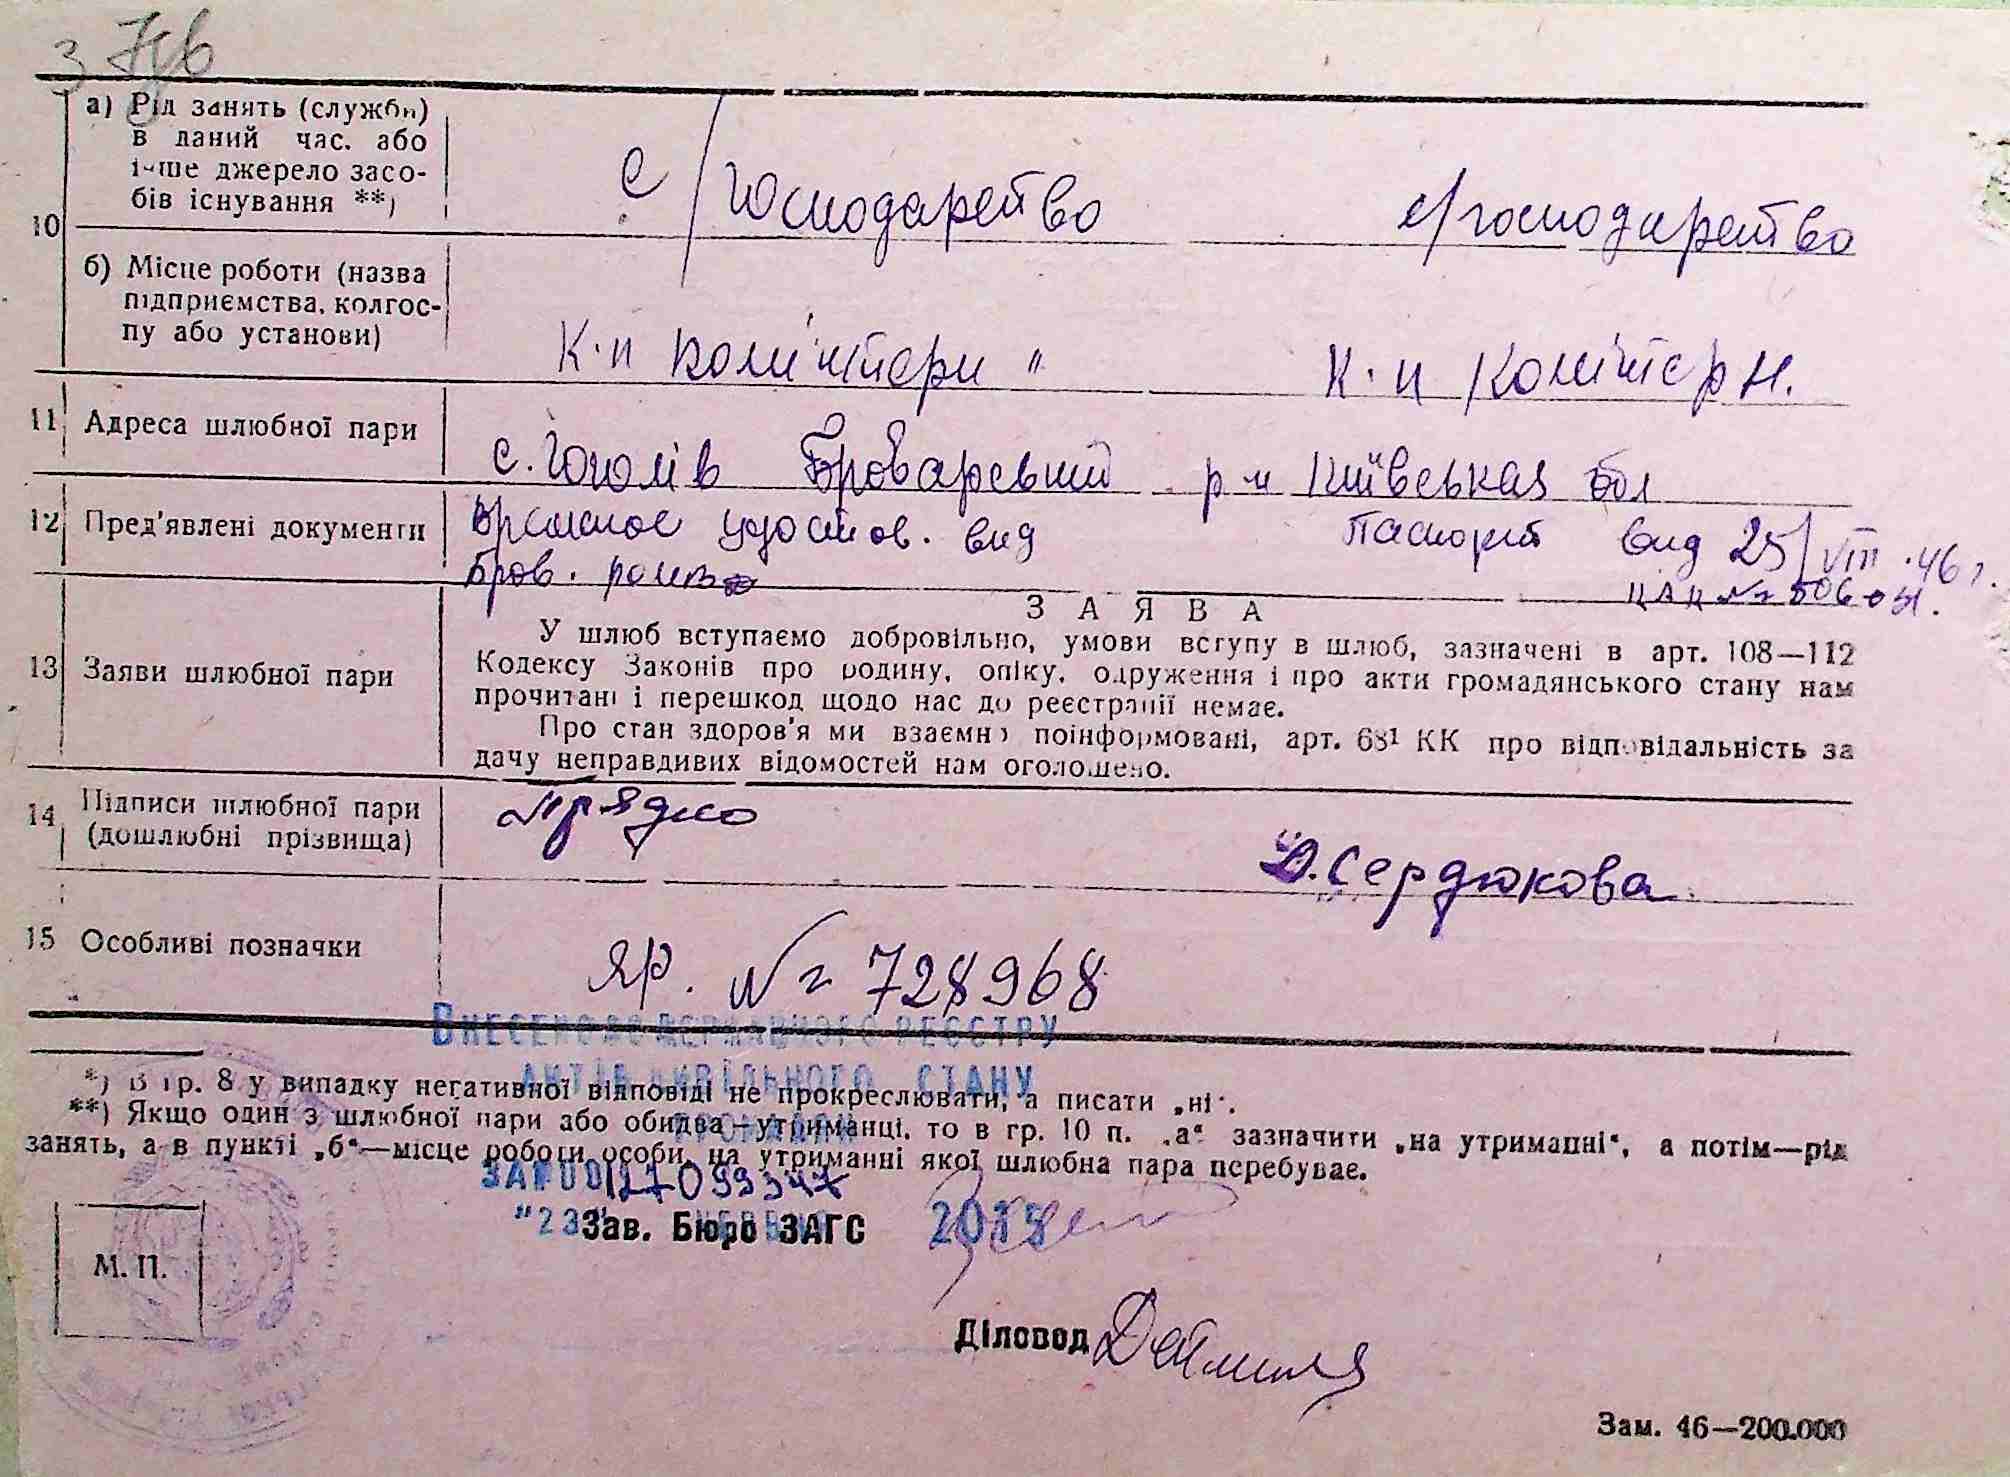 10 а) Рід занять (служби)
в даний час, або
інше джерело засо-
бів існування **)
с/господарство с/господарство
б) Місце роботи (назва
підприємства, колгос-
пу або установи)
к-п Комінтерн" к-п Комінтерн.
11 Адреса шлюбної пари
с. Гоголів Броварський р-н Київськая обл
12 Пред'явлені документи
Временное удостов. вид Паспорт вид 25/VIII.46 г.
Бров.
З А Я В А
13 Заяви шлюбної пари
У шлюб вступаємо добровільно, умови вступу в шлюб, зазначені в арт. 108—112
Кодексу Законів про родину, опіку, одруження і про акти громадянського стану нам
прочитані і перешкод щодо нас до реєстрації немає.
Про стан здоров'я ми взаємно поінформовані, арт. 68¹ КК про відповідальність за
дачу неправдивих відомостей нам оголошено.
14 Підписи шлюбної пари
(дошлюбні прізвища)
Прядко
Сердюкова
15 Особливі позначки
ЯР. № 728968
Внесено до Державного реєстру
актів цивільного стану
громадян
*) В гр. 8 у випадку негативної відповіді не прокреслювати, а писати „ні".
**) Якщо один з шлюбної пари або обидва—утриманці, то в гр. 10 п. „а" зазначити „на утриманні", а потім—рід
занять, а в пункті „б"—місце роботи особи, на утриманні якої шлюбна пара перебуває.
за № 00127099347
"23" 2015
Зав. Бюро ЗАГС
М. П.
Діловод
Зам. 46—200.000